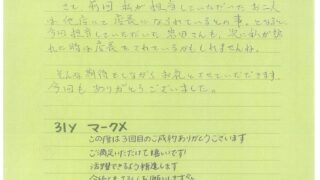 さて前回私が担当していただいたお二人
は他店にて店長になされているとの事。となると
今回担当していただいた さんも、次に私が
れた時は店長をされているかもしれませんね。
そんな期待をしながらお礼とさせていただきます。
今回もありがとうございました。
31Y マークX
この度は3回目のご成約ありがとうございます
ご満足いただけて嬉しいです!
活躍できるよう精進します